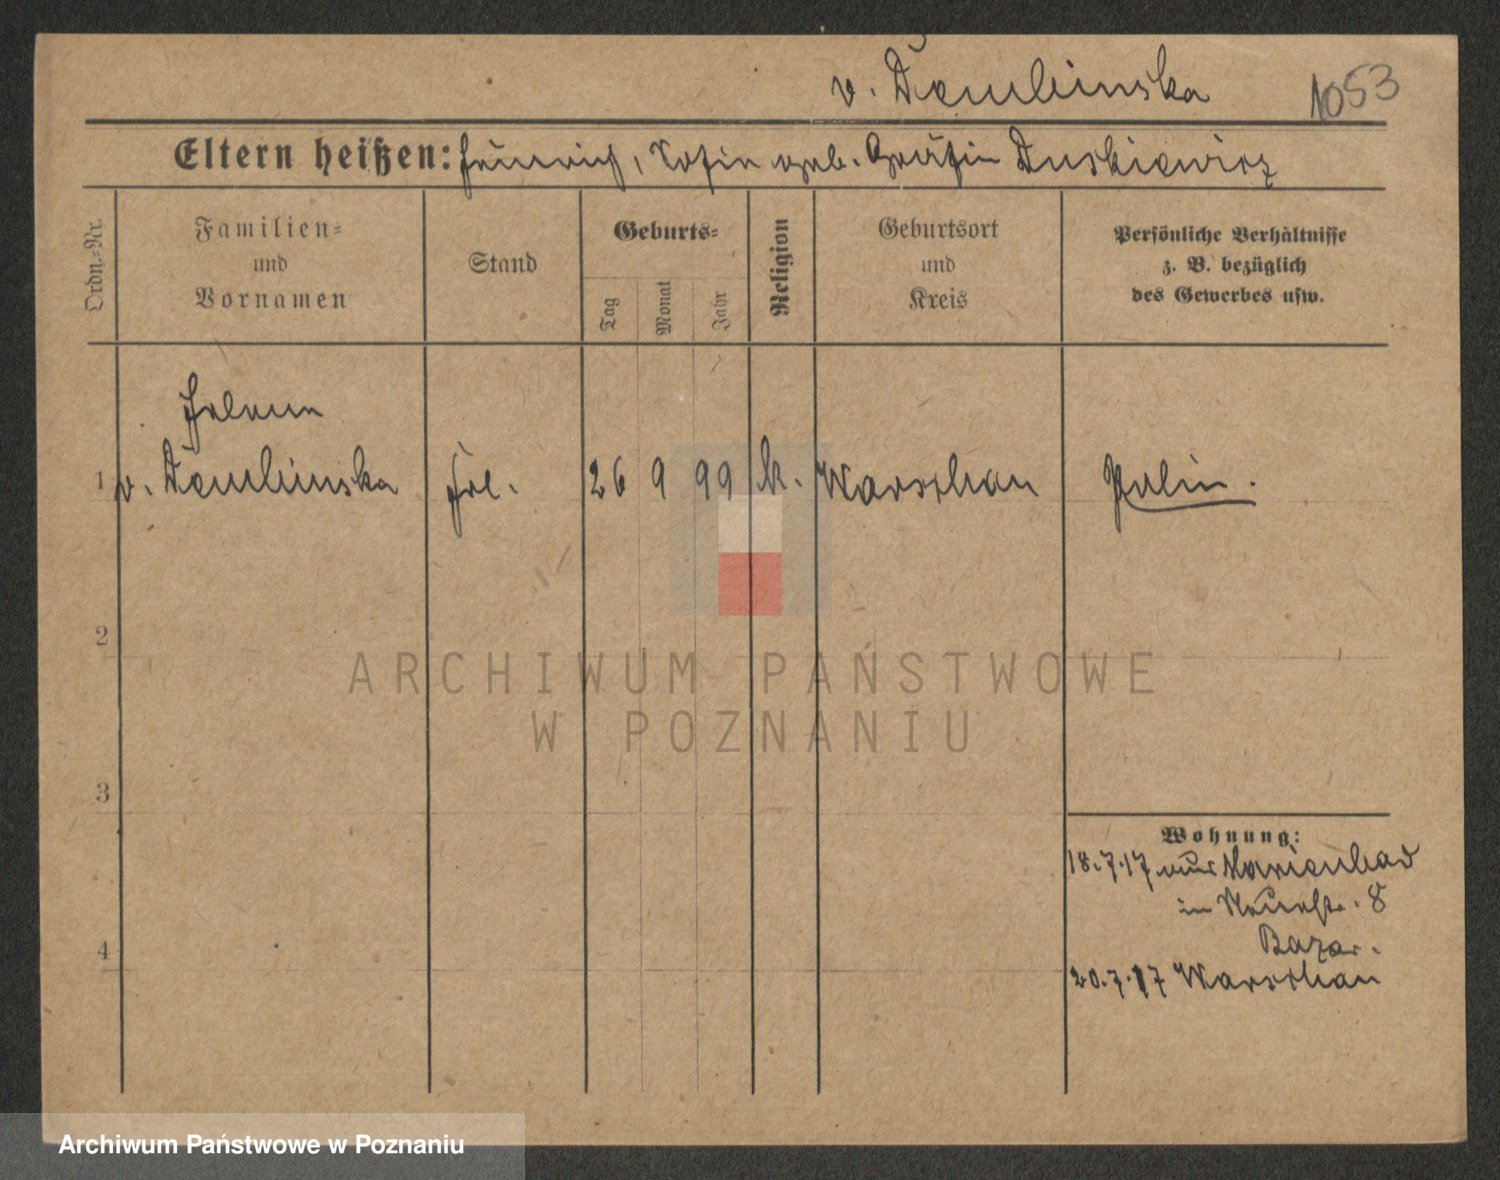 v. Dembinska 1053
Eltern heißen: Heinrich, Sofie geb. Gräfin Duskiewicz
Ordn.-Nr.
Familien-
und
Vornamen
Stand
Geburts-
Tag
Monat
Jahr
Religion
Geburtsort
und
Kreis
Persönliche Verhältnisse
z. B. bezüglich
des Gewerbes usw.
Helene
1 v. Dembinska Frl. 26 9 99 k. Warschau Polin.
2
ARCHIWUM PAŃSTWOWE
W POZNANIU
3
Wohnung:
18.7.17 aus Marienbad
in Neuestr. 8
Bazar.
4
20.7.17 Warschau
Archiwum Państwowe w Poznaniu